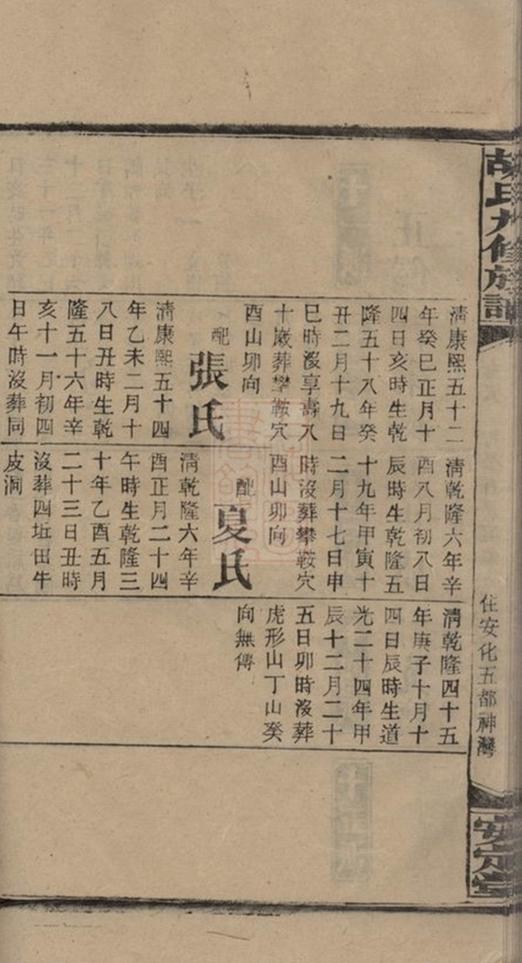 胡氏九修族譜
住安化五都神灣
安定堂
清康熙五十二
年癸巳正月十
四日亥時生乾
隆五十八年癸
丑二月十九日
巳時沒享壽八
十歲葬攀鞍穴
酉山卯向
配張氏
清康熙五十四
年乙未二月十
八日丑時生乾
隆五十六年辛
亥十一月初四
日午時沒葬同
清乾隆六年辛
酉八月初八日
辰時生乾隆五
十九年甲寅十
二月十七日申
時沒葬攀鞍穴
酉山卯向
配夏氏
清乾隆六年辛
酉正月二十四
午時生乾隆三
十年乙酉五月
二十三日丑時
沒葬四坵田牛
皮洞
清乾隆四十五
年庚子十月十
四日辰時生道
光二十四年甲
辰十二月二十
五日卯時沒葬
虎形山丁山癸
向無傳